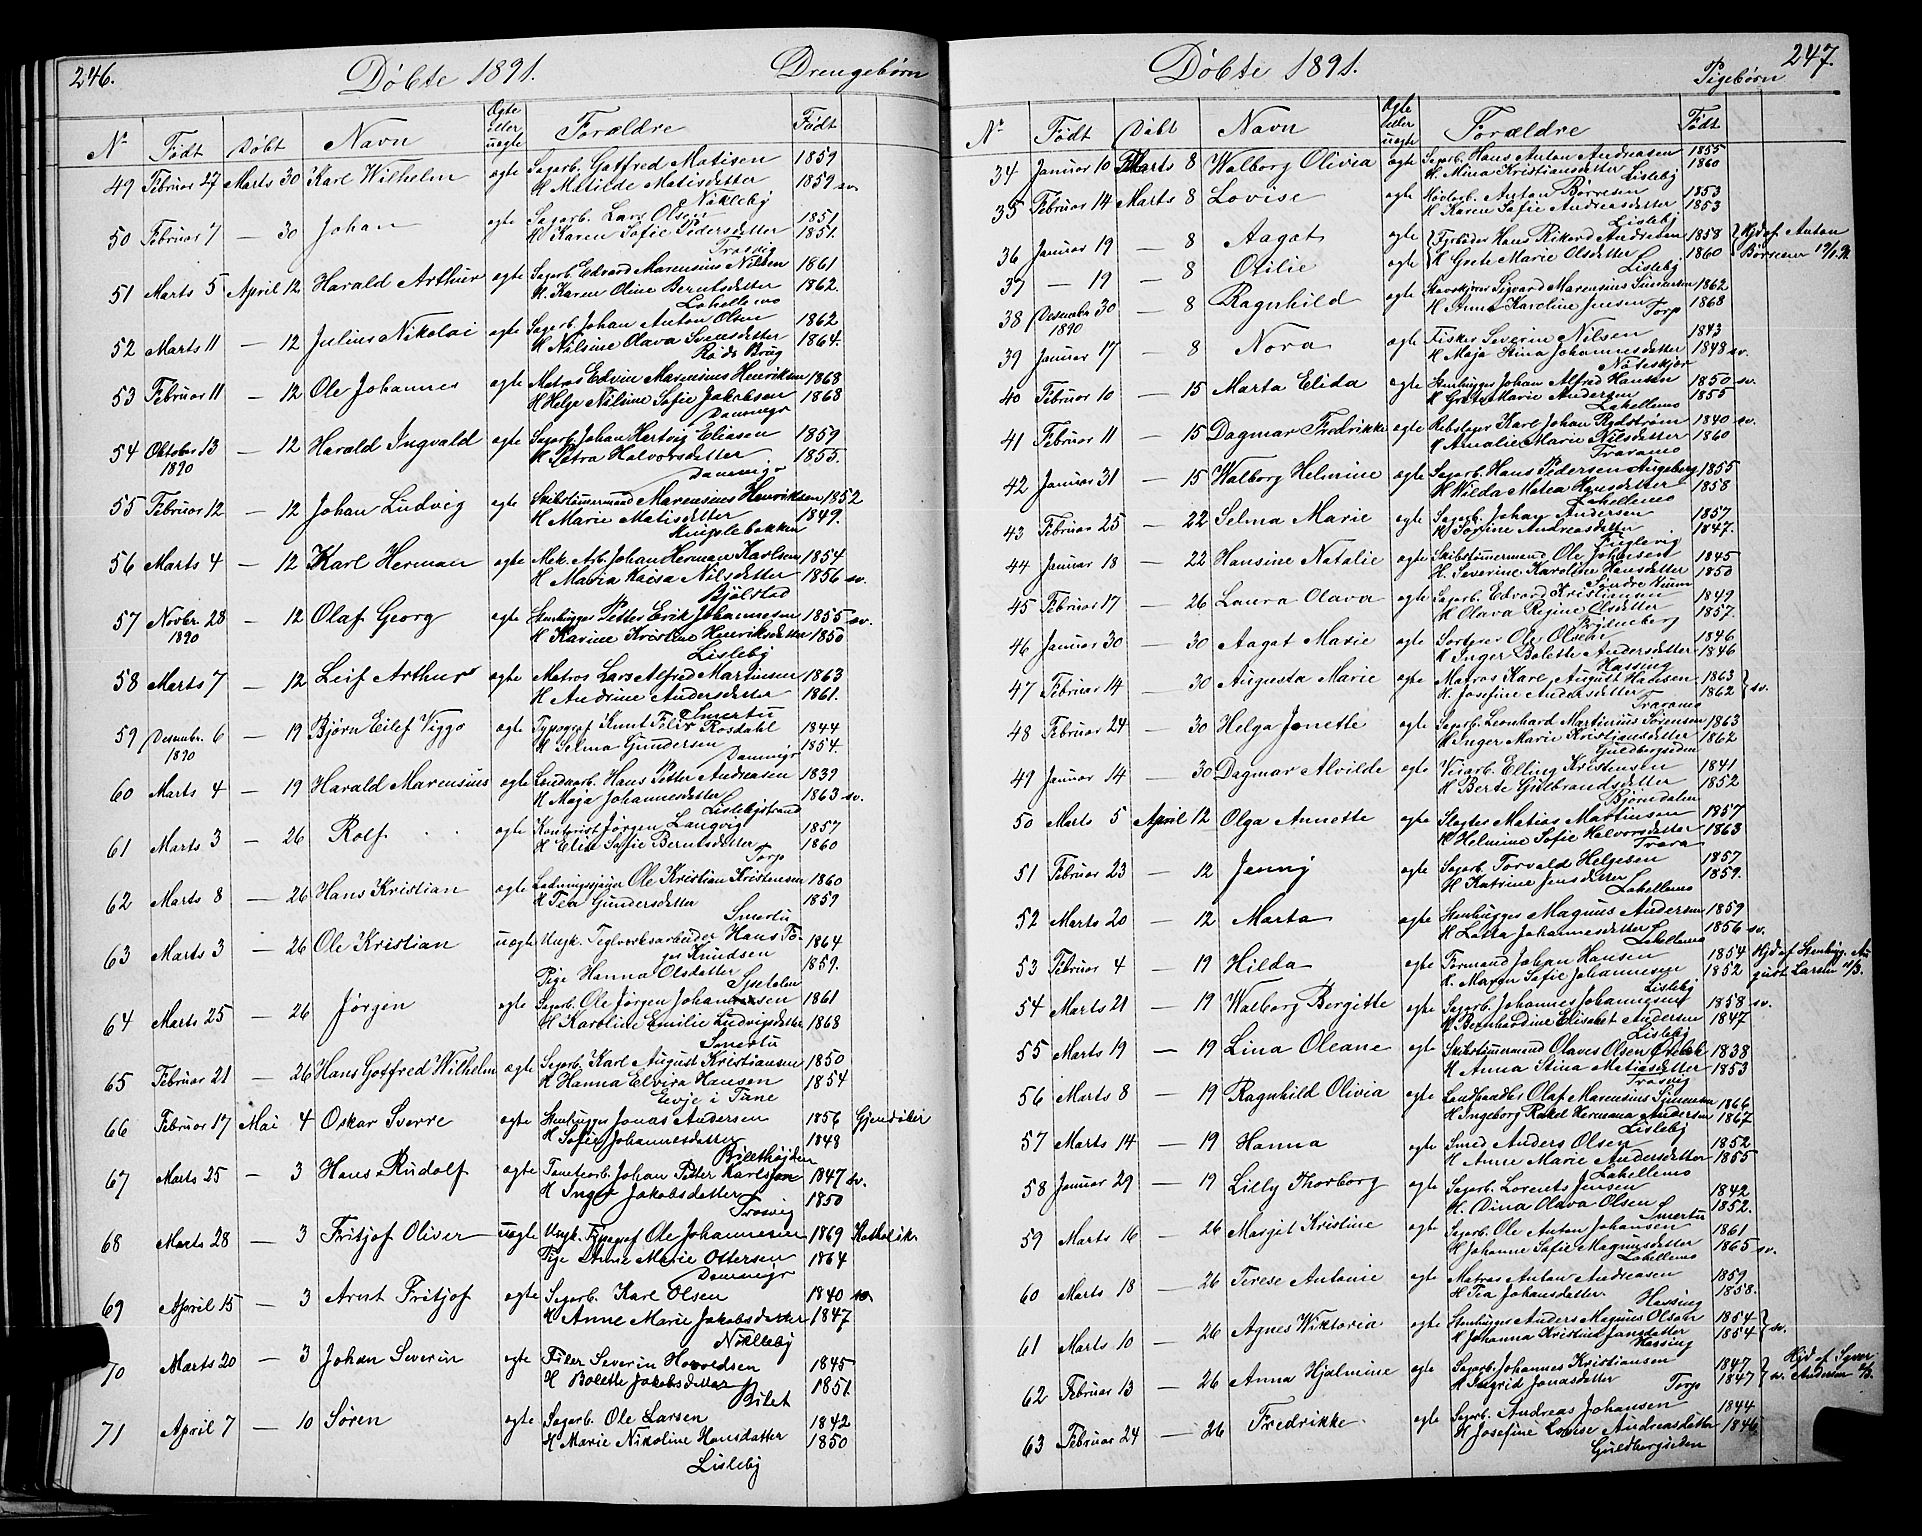 246.
Döbte 1891.
Drengebørn
No Født Döbt Navn Ægte eller uægte Forældre Født
49 Februar 27 Marts 30 Karl Wilhelm ægte Sagarb. Gotfred Matisen 1859
H Matilde Matisdatter 1859 sv.
Nöklebÿ
50 Februar 7 — 30 Johan ægte Sagarb. Lars Olsen 1851
H Karen Sofie Pedersdatter 1851.
Trosvig
51 Marts 5 April 12 Harald Arthur ægte Sagarb. Edvard Marensius Nilsen 1861
H. Karen Oline Berntsdatter 1862.
Lahellemo
52 Marts 11 — 12 Julius Nikolai ægte Sagarb. Johan Anton Olsen 1862
H Nilsine Olava Svensdatter 1864.
Röds Brug
53 Februar 11 — 12 Ole Johannes ægte Matros Edvin Marensius Henriksen 1868
H Helge Nilsine Sofie Jakobsen 1868
Dammegr
54 Oktober 13 1890 — 12 Harald Ingvald ægte Sagarb. Johan Hertvig Eliasen 1859
H Petra Halvorsdatter 1855.
Dammegr
55 Februar 12 — 12 Johan Ludvig ægte Skibstömermand Marensius Henriksen 1852
H Marie Matisdatter 1849.
Kniplebakken
56 Marts 4 — 12 Karl Herman ægte Mek. Arb. Johan Herman Karlsen 1854
H Maria Kaisa Nilsdatter 1856 sv.
Bjölstad
57 Novbr. 28 1890 — 12 Olaf Georg ægte Stenhugger Petter Erik Johannesen 1855 sv.
H Karine Kristine Henriksdatter 1850
Lislebÿ
58 Marts 7 — 12 Leif Arthur ægte Matros Lars Alfred Martinsen 1863
H Andrine Andersdatter 1861.
Smertu
59 Desember. 6 1890 — 19 Björn Eilef Viggo ægte Typograf Knut Felix Rosdahl 1844
H Selma Gundersen 1854.
Dammegr
60 Marts 4 — 19 Harald Marensius ægte Landarb. Hans Petter Andreasen 1839
H Maja Johannesdatter 1863 sv.
Lislebÿstrand
61 Marts 3 — 26 Rolf ægte Kontorist Jörgen Langvig 1857
H Elise Sofie Berntsdatter 1860
Torp
62 Marts 8 — 26 Hans Kristian ægte Ole Kristian Kristensen 1860
H Tea Gundersdatter 1859
Smertu
63 Marts 3 — 26 Ole Kristian uægte Ungk. Teglverksarbeider Hans To-
ger Knudsen 1864
Pige Hanna Olsdatter 1859.
64 Marts 25 — 26 Jörgen ægte Sagarb. Ole Jörgen Johannesen 1861
H Karoline Emilie Ludvigsdatter 1868
Smertu
65 Februar 21 — 26 Hans Gotfred Wilhelm ægte Sagarb. Karl August Kristiansen 1850
H Hanna Elvira Hansen 1854
Evje i Tune
66 Februar 17 Mai 4 Oskar Sverre ægte Stenhugger Jonas Andersen 1856 Gjendöber
H Sofie Johannesdatter 1848
67 Marts 25 — 3 Hans Rudolf ægte Tomtearb. Johan Petter Karlsson 1847 sv.
H Inger Jakobsdatter 1850
Trosvig
68 Marts 28 — 3 Fritjof Oliver uægte Ungk. Typograf Ole Johannesen 1869 Katholik
Pige Anne Marie Ottersen 1864
Dammegr
69 April 15 — 3 Arnt Fritjof ægte Sagarb. Karl Olsen 1840 sv.
H Anne Marie Jakobsdatter 1847
Nöklebÿ
70 Marts 20 — 3 Johan Severin ægte Filer Severin Hovoldsen 1845
H Bolette Jakobsdatter 1851.
Bilet
71 April 7 — 10 Sören ægte Sagarb. Ole Larsen 1842
H Marie Nikoline Hansdatter 1850
Lislebÿ
247.
Döbte 1891.
Pigebørn
No Født Döbt Navn Ægte eller uægte Forældre Født
34 Januar 10 Marts 8 Walborg Olivia ægte Sagarb. Hans Anton Andreasen 1855
H. Mina Kristiansdatter 1860
Lislebÿ
35 Februar 14 Marts 8 Lovise ægte Hövlarb. Anton Börresen 1853
H Karen Sofie Andreasdatter 1853
Lislebÿ
36 Januar 19 — 8 Aagot ægte Fyrböder Hans Rikard Andresen 1858 Hjd af Anton
37 — 19 — 8 Otilie ægte H Grete Marie Olsdatter 1860 Börresen
Lislebÿ
38 Desember 30 1890 — 8 Ragnhild ægte Havskjörer Sigvard Marensius Simensen 1862
H Anna Karoline Jensen 1868
Torp
39 Januar 17 — 8 Nora ægte Fisker Severin Nilsen 1843
H Maja Stina Johannesdatter 1848 sv.
Nöteskjær
40 Februar 10 — 15 Marta Elida ægte Stenhugger Johan Alfred Hansen 1850 sv.
H Grete Marie Andersen 1855
Lahellemo
41 Februar 11 — 15 Dagmar Fredrikke ægte Rebslager Karl Johan Rydström 1840 sv.
H Amalie Marie Nilsdatter 1860
Traramo
42 Januar 31 — 15 Walborg Helmine ægte Sagarb. Hans Pedersen Augeberg 1855
H Wilda Matea Hansdatter 1858
Lahellemo
43 Februar 25 — 22 Selma Marie ægte Sagarb. Johan Andersen 1857
H Torine Andreasdatter 1847.
Fuglevig
44 Januar 18 — 22 Hansine Natalie ægte Skibstömermand Ole Johansen 1845
H. Severine Karoline Hansdatter 1850
Söndre Kum
45 Februar 17 — 26 Laura Olava ægte Sagarb. Edvard Kristiansen 1849
H Olava Regine Olsdatter 1857.
46 Januar 30 — 30 Aagot Marie ægte Sorterer Ole Olsen 1846
H Inger Bolette Andersdatter 1846
Hassing
47 Februar 14 — 30 Augusta Marie ægte Matros Karl August Hansen 1863
H. Josefine Andersdatter 1862 sv.
Traramo
48 Februar 24 — 30 Helga Jonette ægte Sagarb. Leonhard Martinius Sörensen 1863
H Inger Marie Kristiansdatter 1862
Guldbergseden
49 Januar 14 — 30 Dagmar Alvilde ægte Veiarb. Elling Kristensen 1841
H Berte Gulbrandsdatter 1852
Björndalen
50 Marts 5 April 12 Olga Annette ægte Slagter Matias Martinsen 1857
H Helmine Sofie Halvorsdatter 1863
Trara
51 Februar 23 — 12 Jenny ægte Sagarb. Torvald Helgesen 1857
H Katrine Jensdatter 1859.
Lahellemo
52 Marts 20 — 12 Marta ægte Stenhugger Magnus Andersen 1859
H Lotta Johannesdatter 1856 sv.
Lahellemo
53 Februar 4 — 19 Hilda ægte Formand Johan Hansen 1854 Hjd af Stenhug. Au-
H. Maren Sofie Johannesen 1852 gust Larsen
Lislebÿ
54 Marts 21 — 19 Walborg Bergitte ægte Sagarb. Johannes Johannesen 1858 sv.
H Bernhardine Elisabet Andersen 1847
Lislebÿ
55 Marts 19 — 19 Lina Oleane ægte Skibstömermand Olaves Olsen Örbek 1838
H Anna Stina Matiasdatter 1853
Trosvig
56 Marts 8 — 19 Ragnhild Olivia ægte Landhandler Olaf Marensius Simensen 1866
H Ingeborg Rakel Hermana Andersen 1867
Lislebÿ
57 Marts 14 — 19 Hanna ægte Smed Anders Olsen 1852
H Anne Marie Andersdatter 1855
Lahellemo
58 Januar 29 — 19 Lilly Thorborg ægte Sagarb. Lorents Jensen 1842
H. Dina Olava Olsen 1852.
Smertu
59 Marts 16 — 26 Margit Kristine ægte Sagarb. Ole Anton Johansen 1861
H Johanne Sofie Magnusdatter 1865 sv.
Lahellemo
60 Marts 18 — 26 Terese Antonie ægte Matros Anton Andreasen 1859
H Tea Johansdatter 1858.
Hassing
61 Marts 10 — 26 Agnes Wiktoria ægte Stenhugger Anders Magnus Olsen 1854
H Johanna Kristine Jansdatter 1854 sv.
Hassing
62 Februar 13 — 26 Anna Hjalmine ægte Sagarb. Johannes Kristiansen 1847 Hjd af
H Ingrid Jonasdatter 1847 sv. Andersen
Torp
63 Februar 24 — 26 Fredrikke ægte Sagarb. Andreas Johansen 1844
H Josefine Lovise Andreasdatter 1846
Guldbergseden